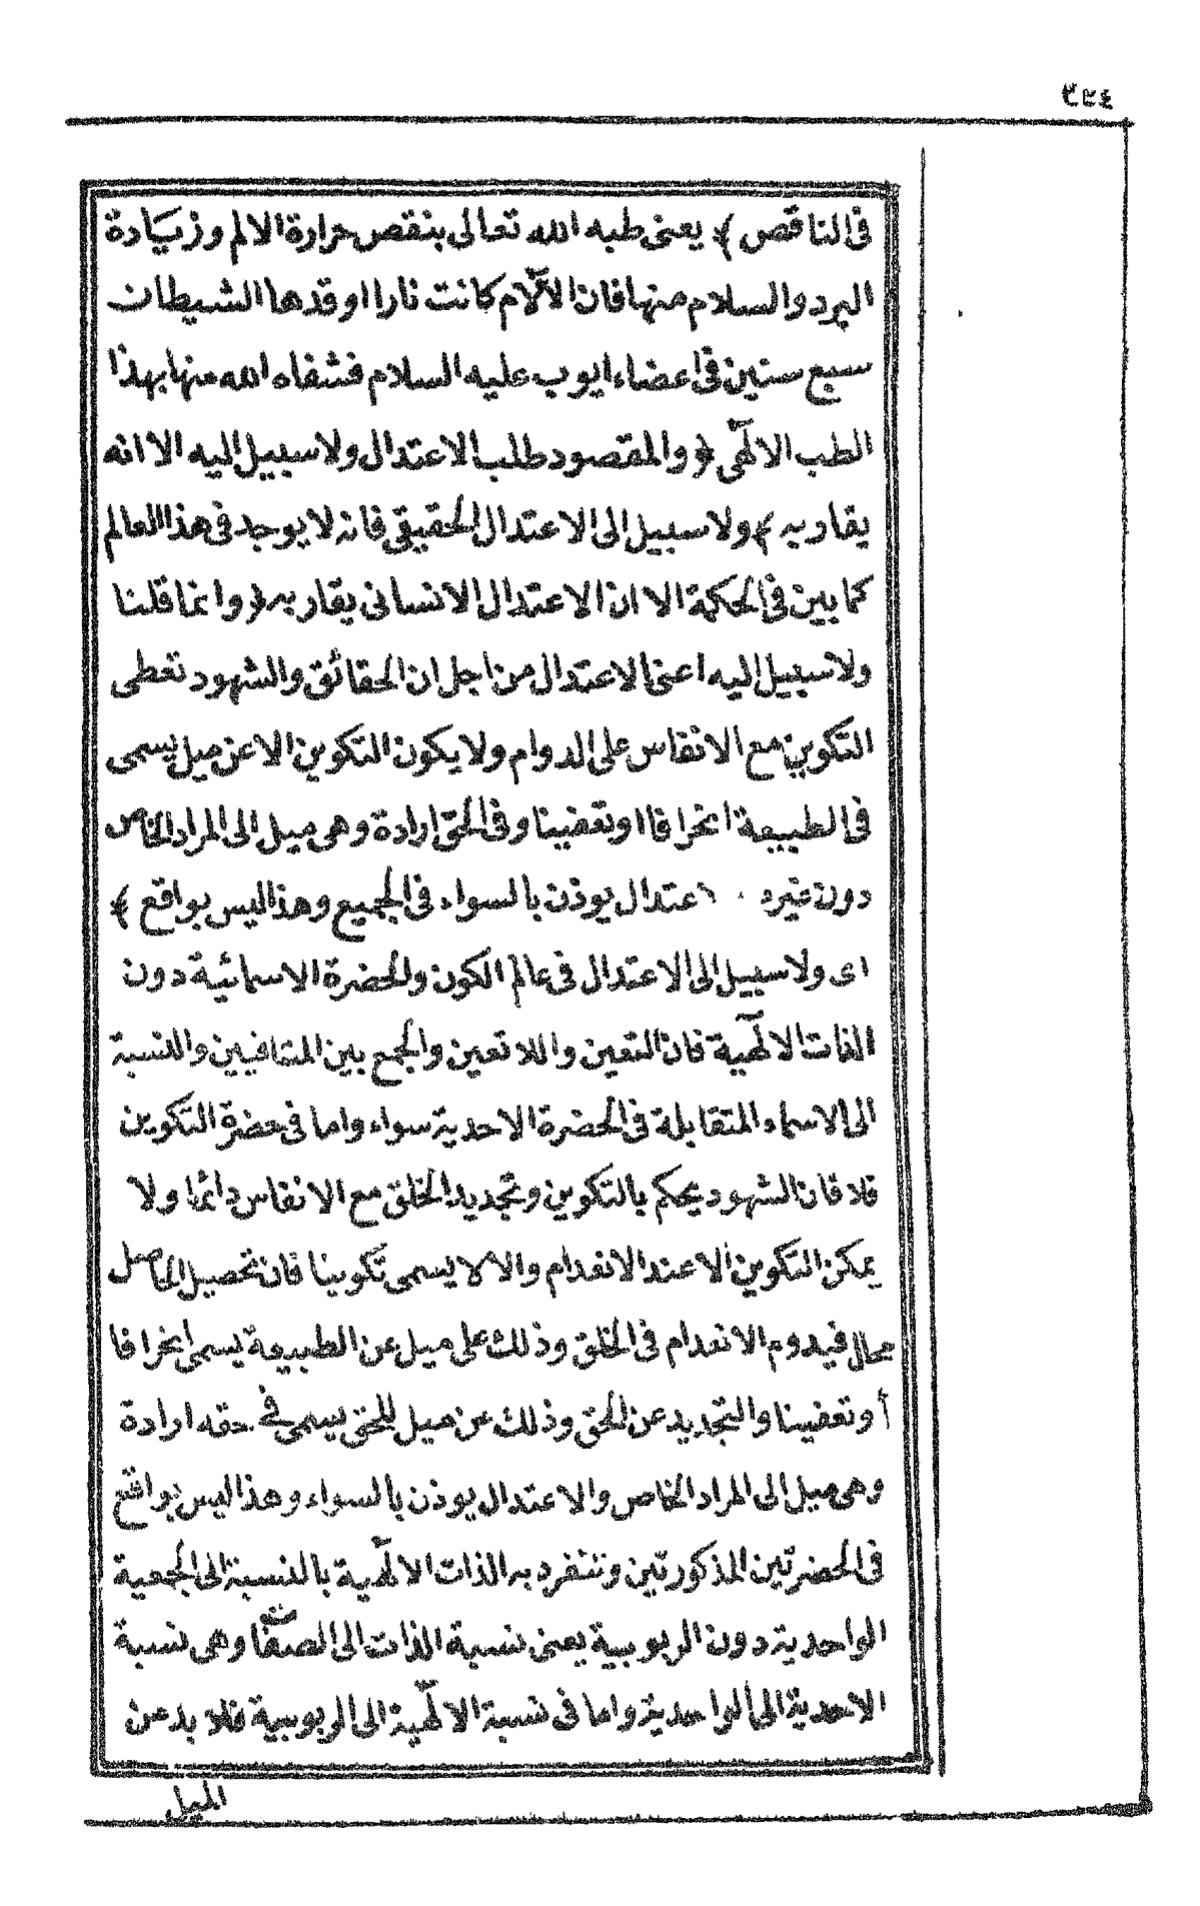 ٣٢٤
فى الناقص ﴾ يعنى طبه الله تعالى بنقص حرارة الالم وزيادة
البرد والسلام منها فان الآلام كانت نارا اوقدها الشيطان
سبع سنين فى اعضاء ايوب عليه السلام فشفاه الله منها بهذا
الطب الالٓهى ﴿ والمقصود طلب الاعتدال ولا سبيل اليه الا انه
يقاربه ﴾ ولا سبيل الى الاعتدال الحقيقى فانه لا يوجد فى هذا العالم
كما بين فى الحكمة الا ان الاعتدال الانسانى يقاربه ﴿ وانما قلنا
ولا سبيل اليه اعنى الاعتدال من اجل ان الحقائق والشهود تعطى
التكوين مع الانفاس على الدوام ولا يكون التكوين الا عن ميل يسمى
فى الطبيعة انحرافا او تعفينا وفى الحق ارادة وهى ميل الى المراد الخاص
دون غيره اعتدال يوذن بالسواء فى الجميع وهذا ليس بواقع ﴾
اى ولا سبيل الى الاعتدال فى عالم الكون والحضرة الاسمائية دون
الذات الالٓهية فان التعين واللا تعين والجمع بين المتنافيين والنسبة
الى الاسماء المتقابلة فى الحضرة الاحدية سواء واما فى حضرة التكوين
فلا فان الشهود يحكم بالتكوين وتجديد الخلق مع الانفاس دائما ولا
يمكن التكوين الا عند الانعدام والا لا يسمى تكوينا فان تحصيل الحاصل
محال فيدوم الانعدام فى الخلق وذلك على ميل عن الطبيعة يسمى انحرافا
أو تعفينا والتجديد عن الحق وذلك عن ميل للحق يسمى فى حقه ارادة
وهى ميل الى المراد الخاص والاعتدال يوذن بالسواء وهذا ليس بواقع
فى الحضرتين المذكورتين وتنفرد به الذات الالٓهية بالنسبة الى الجمعية
الواحدية دون الربوبية يعنى نسبة الذات الى الصفات وهى نسبة
الاحدية الى الواحدية واما فى نسبة الالٓهية الى الربوبية فلا بد عن
الميل